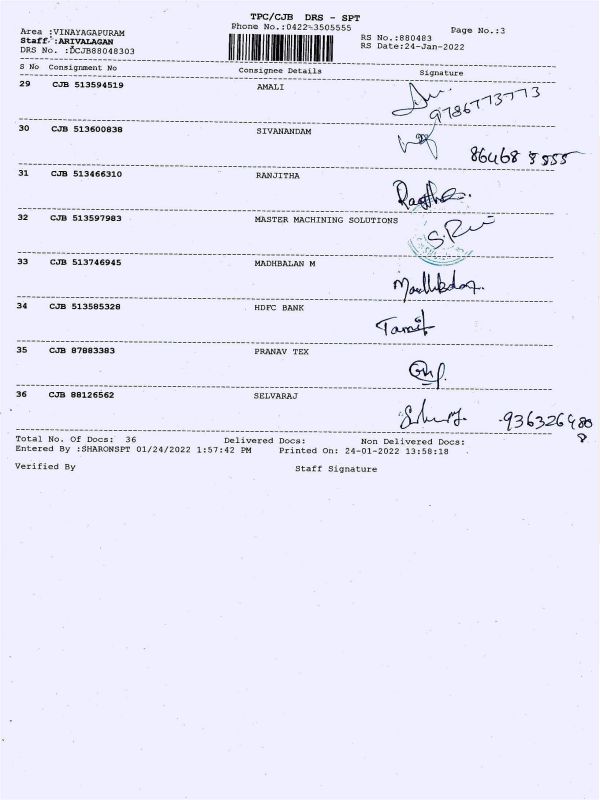 TPC/CJB DRS - SPT
Phone No.:0422-3505555
Page No.:3
Area :VINAYAGAPURAM
RS No.:880483
Staff :ARIVALAGAN
RS Date:24-Jan-2022
DRS No. :DCJB88048303
S No Consignment No Consignee Details Signature
29 CJB 513594519 AMALI
9786773773
30 CJB 513600838 SIVANANDAM
86468 5555
31 CJB 513466310 RANJITHA
32 CJB 513597983 MASTER MACHINING SOLUTIONS
33 CJB 513746945 MADHBALAN M
34 CJB 513585328 HDFC BANK
35 CJB 87883383 PRANAV TEX
36 CJB 88126562 SELVARAJ
Total No. Of Docs: 36 Delivered Docs: Non Delivered Docs:
Entered By :SHARONSPT 01/24/2022 1:57:42 PM Printed On: 24-01-2022 13:58:18
Verified By Staff Signature